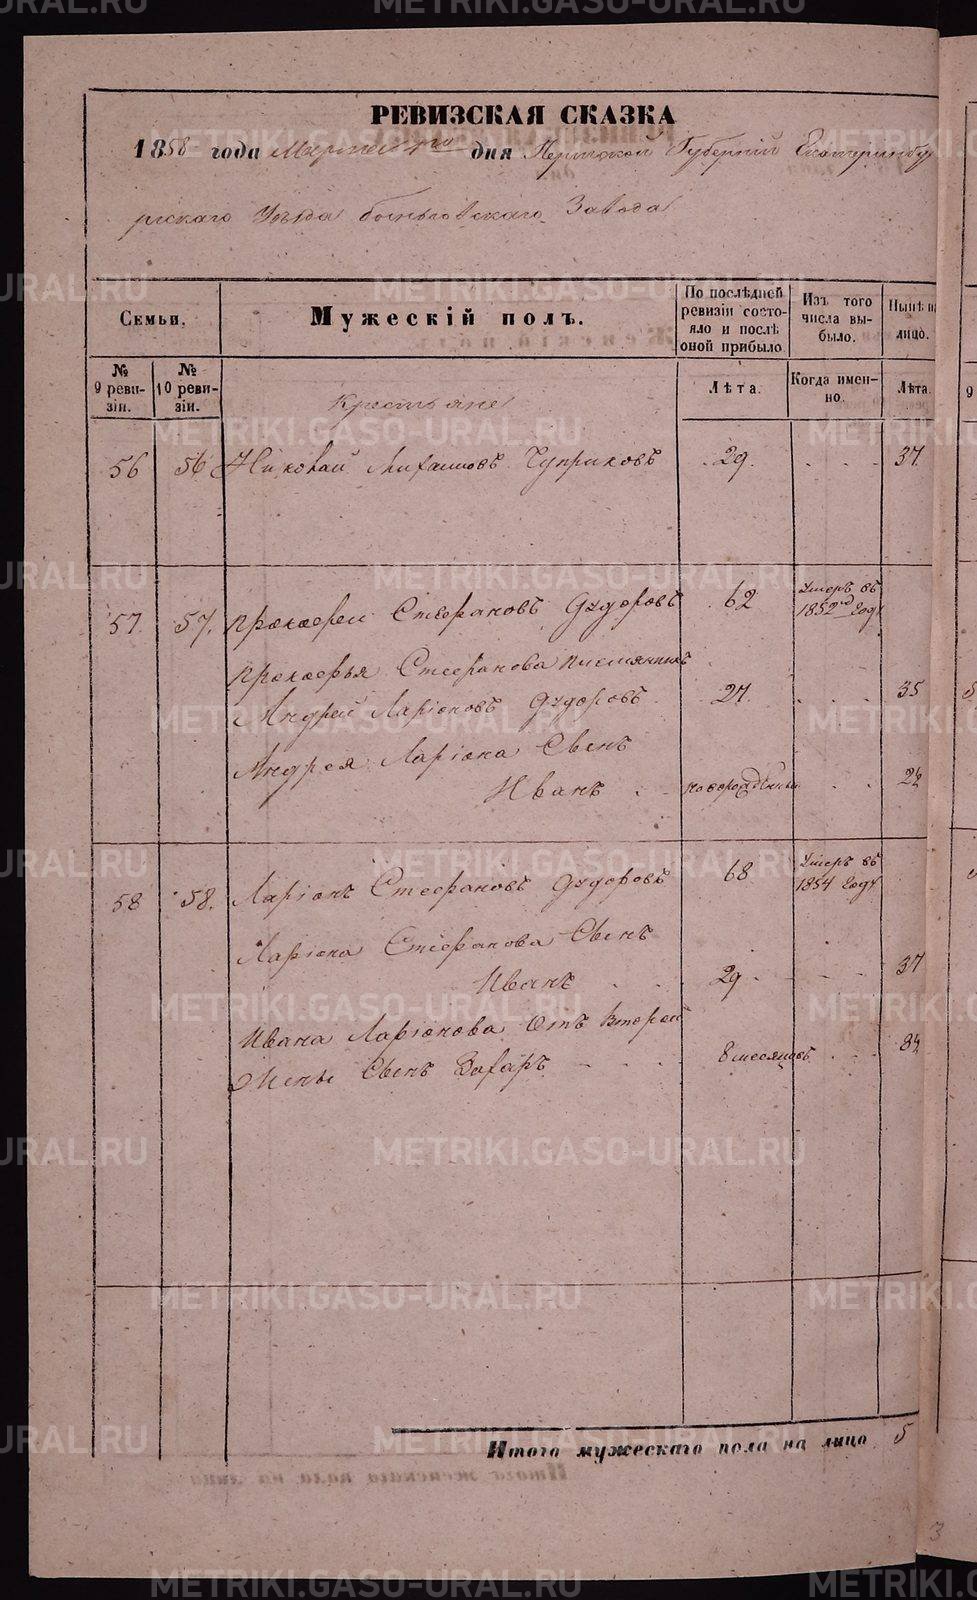 РЕВИЗСКАЯ СКАЗКА
1858 года Марта дня Пермской Губернiй Екатеринбу
ргскаго Уѣзда Завода
Семьи.
Мужескiй полъ.
По послѣдней ревизiи состояло и послѣ оной прибыло
Изъ того числа выбыло.
Нынѣ
лицо.
№ 9 ревизiи.
№ 10 ревизiи.
Лѣта.
Когда именно.
Лѣта.
Крестьяне
56 56 Николай Михаиловъ Чуприковъ 29 37
57. 57. Прокофей Стефановъ 62 Умеръ въ 1852 году
Прокофья Стефанова племянникъ
Андрей Ларiоновъ 27 35
Андрея Ларiона Сынъ
Иванъ
58 58. Ларiонъ Стефановъ 68 Умеръ въ 1854 году
Ларiона Стефанова Сынъ
Иванъ 29 37
Ивана Ларiонова Отъ второй
Жены Сынъ Захаръ 8 месяцовъ
Итого мужескаго пола на лицо 5
3
METRIKI.GASO-URAL.RU